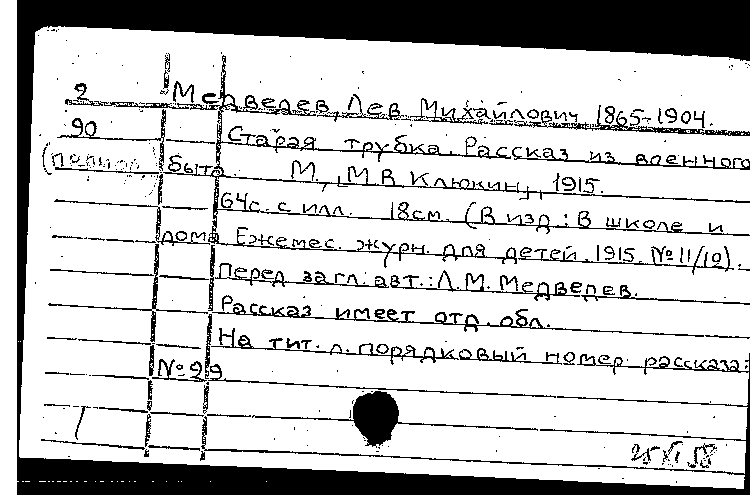 9 Медведев, Лев Михайлович 1865-1904.
90 Старая трубка. Рассказ из военного
(период.) быта. М., [М.В. Клюкин], 1915.
64с. с илл. 18см. (В изд.: В школе и
дома. Ежемес. журн. для детей. 1915. №11/12).
Перед загл. авт.: Л.М. Медведев.
Рассказ имеет отд. обл.
На тит. л. порядковый номер рассказа:
№ 99
25 XI 58